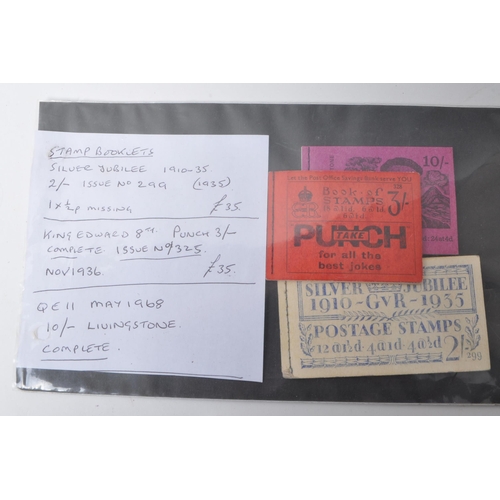 STAMP BOOKLETS
SILVER JUBILEE 1910-35
2/- ISSUE NO 299 (1935)
1 x ½p MISSING £35
KING EDWARD 8TH. PUNCH 3/-
COMPLETE ISSUE No/325.
NOV 1936. £35.
QE II MAY 1968
10/- LIVINGSTONE.
COMPLETE.
10/-
Book of
STAMPS
3/-
TAKE
PUNCH
for all the
best jokes
SILVER JUBILEE
1910-GVR-1935
POSTAGE STAMPS
2/-
299